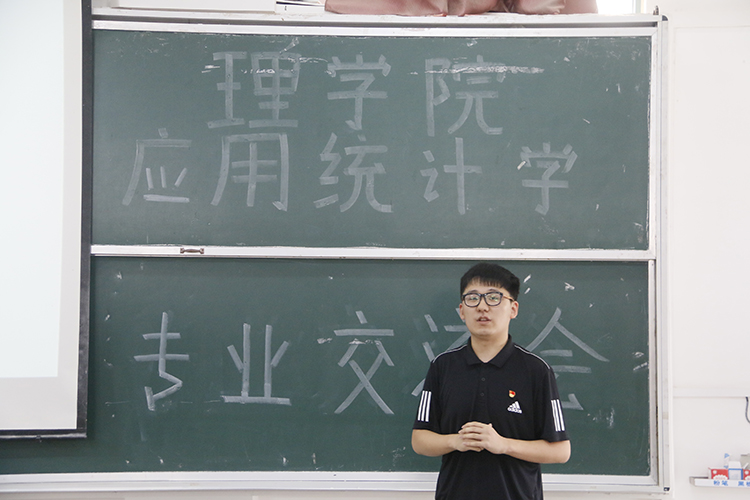 理学院
应用统计学
专业交流会
adidas